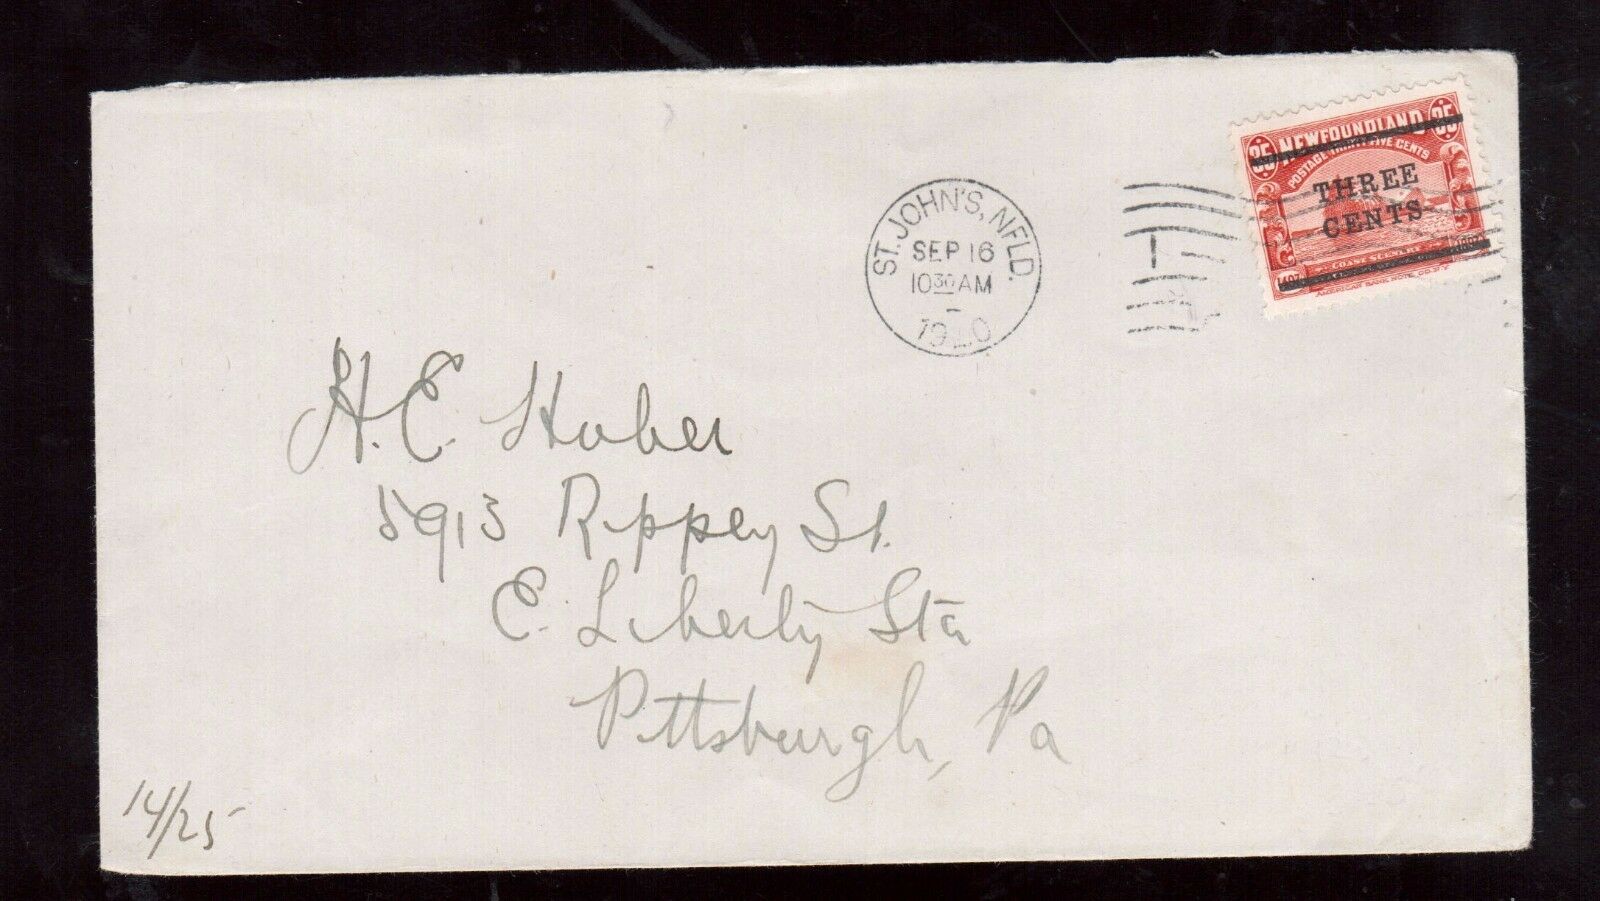 ST. JOHN'S, NFLD.
SEP 16
10 30 AM
1920
35 NEWFOUNDLAND 35
POSTAGE THIRTY FIVE CENTS
THREE
CENTS
1497 COAST SCENERY 1897
AMERICAN BANK NOTE CO. N.Y.
H. E. Huber
5913 Rippey St.
E. Liberty Sta
Pittsburgh, Pa
14/25